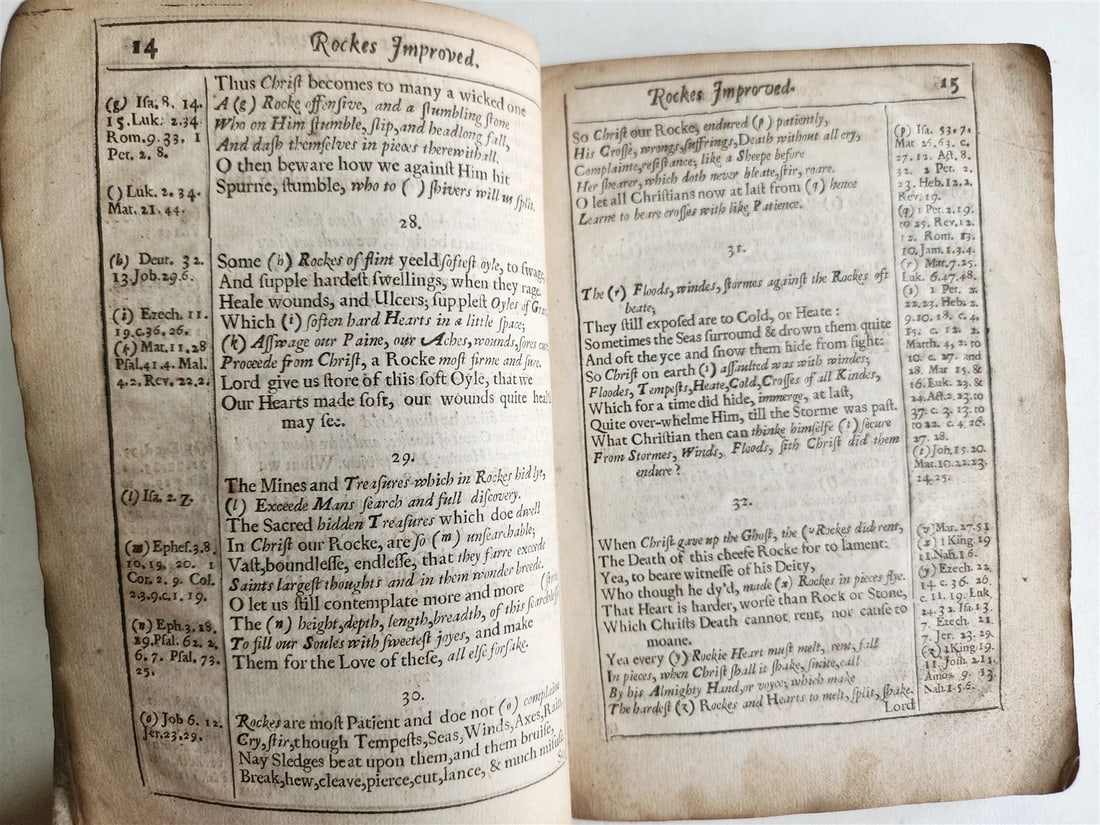 14
Rockes Improved.
Thus Chriſt becomes to many a wicked one
A (g) Rocke offenſive, and a ſtumbling ſtone
Who on Him ſtumble, ſlip, and headlong fall,
And daſh themſelves in pieces therewithall.
O then beware how we againſt Him hit
Spurne, ſtumble, who to ( ) ſhivers will us ſplit.
(g) Iſa. 8. 14.
15. Luk. 2. 34
Rom. 9. 33. 1
Pet. 2. 8.
() Luk. 2. 34.
Mat. 21. 44.
28.
Some (h) Rockes of flint yeeld ſofteſt oyle, to ſwage
And ſupple hardeſt ſwellings, when they rage.
Heale wounds, and Ulcers; ſuppleſt Oyles of
Which (i) ſoften hard Hearts in a little ſpace;
(k) Aſſwage our Paine, our Aches, wounds, ſores
Proceede from Chriſt, a Rocke moſt firme and ſure.
Lord give us ſtore of this ſoft Oyle, that we
Our Hearts made ſoft, our wounds quite
may ſee.
(h) Deut. 32.
13. Job. 29. 6.
(i) Ezech. 11.
19. c. 36. 26.
(k) Mat. 11. 28
Pſal. 41. 4. Mal.
4. 2. Rev. 22. 2.
29.
The Mines and Treaſures which in Rockes hid lye,
(l) Exceede Mans ſearch and full diſcovery.
The Sacred hidden Treaſures which doe dwell
In Chriſt our Rocke, are ſo (m) unſearchable;
Vaſt, boundleſſe, endleſſe, that they farre exceede
Saints largeſt thoughts and in them wonder breede.
O let us ſtill contemplate more and more
The (n) height, depth, length, breadth, of this
To fill our Soules with ſweeteſt joyes, and make
Them for the Love of theſe, all elſe forſake.
(l) Iſa. 2. 7.
(m) Epheſ. 3. 8.
10. 19. 20. 1
Cor. 2. 9. Col.
2. 3. 9. c. 1. 19.
(n) Eph. 3. 18.
19. Pſal. 62. 2.
6. 7. Pſal. 73.
25.
30.
Rockes are moſt Patient and doe not (o) complaine
Cry, ſtir, though Tempeſts, Seas, Winds, Axes, Rain,
Nay Sledges beat upon them, and them bruiſe,
Break, hew, cleave, pierce, cut, lance, & much miſuſe
(o) Job 6. 12.
Jer. 23. 29.
Rockes Improved.
15
So Chriſt our Rocke, endured (p) patiently,
His Croſſe, wrongs, ſuffrings, Death without all cry,
Complainte, reſiſtance; like a Sheepe before
Her ſhearer, which doth never bleate, ſtir, roare.
O let all Chriſtians now at laſt from (q) hence
Learne to beare croſſes with like Patience.
31.
The (r) Floods, windes, ſtormes againſt the Rockes oft
beate;
They ſtill expoſed are to Cold, or Heate:
Sometimes the Seas ſurround & drown them quite
And oft the yce and ſnow them hide from ſight:
So Chriſt on earth (s) aſſaulted was with windes,
Floodes, Tempeſts, Heate, Cold, Croſſes of all Kindes,
Which for a time did hide, immerge, at laſt,
Quite over-whelme Him, till the Storme was paſt.
What Chriſtian then can thinke himſelfe (t) ſecure
From Stormes, Winds, Floods, ſith Chriſt did them
endure?
32.
When Chriſt gave up the Ghoſt, the (v Rockes did rent,
The Death of this cheefe Rocke for to lament:
Yea, to beare witneſſe of his Deity,
Who though he dy'd, made (x) Rockes in pieces flye.
That Heart is harder, worſe than Rock or Stone,
Which Chriſts Death cannot rent, nor cauſe to
moane.
Yea every (y) Rockie Heart muſt melt, rent, fall
In pieces, when Chriſt ſhall it ſhake, ſmite, call
By his Almighty Hand, or voyce; which make
The hardeſt (z) Rockes and Hearts to melt, ſplit, ſhake.
Lord
(p) Iſa. 53. 7.
Mat. 26. 63. c.
27. 12. Act. 8.
32. 1 Pet. 2.
23. Heb. 12. 2.
Rev. 19.
(q) 1 Pet. 2. 19.
to 25. Rev. 12.
12. Rom. 13.
10. Jam. 1. 3. 4.
(r) Mat. 7. 25.
Luk. 6. 47. 48.
(s) 1 Pet. 2.
22. 23. Heb. 2.
9. 10. 18. c. 4.
15. c. 12. 2.
Matth. 4. 2. to
10. c. 27. and
28. Mar 15. &
16. Luk. 23. &
24. Act. 2. 23. to
37. c. 3. 13. to
to 22. c. 4. 26.
27. 28.
(t) Joh. 15. 20.
Mar. 10. 22. 23.
24. 25.
(v) Mat. 27. 51
(x) 1 King. 19
11. Nah. 1. 6.
(y) Ezech. 22.
14 c. 36. 26.
c. 11. 19. Luk.
24. 32. Iſa. 13.
7. Ezech. 21.
7. Jer. 23. 29.
(z) 1 King. 19.
11. Joſh. 2. 11.
Amos 9. 13.
Nah. 1. 5. 6.